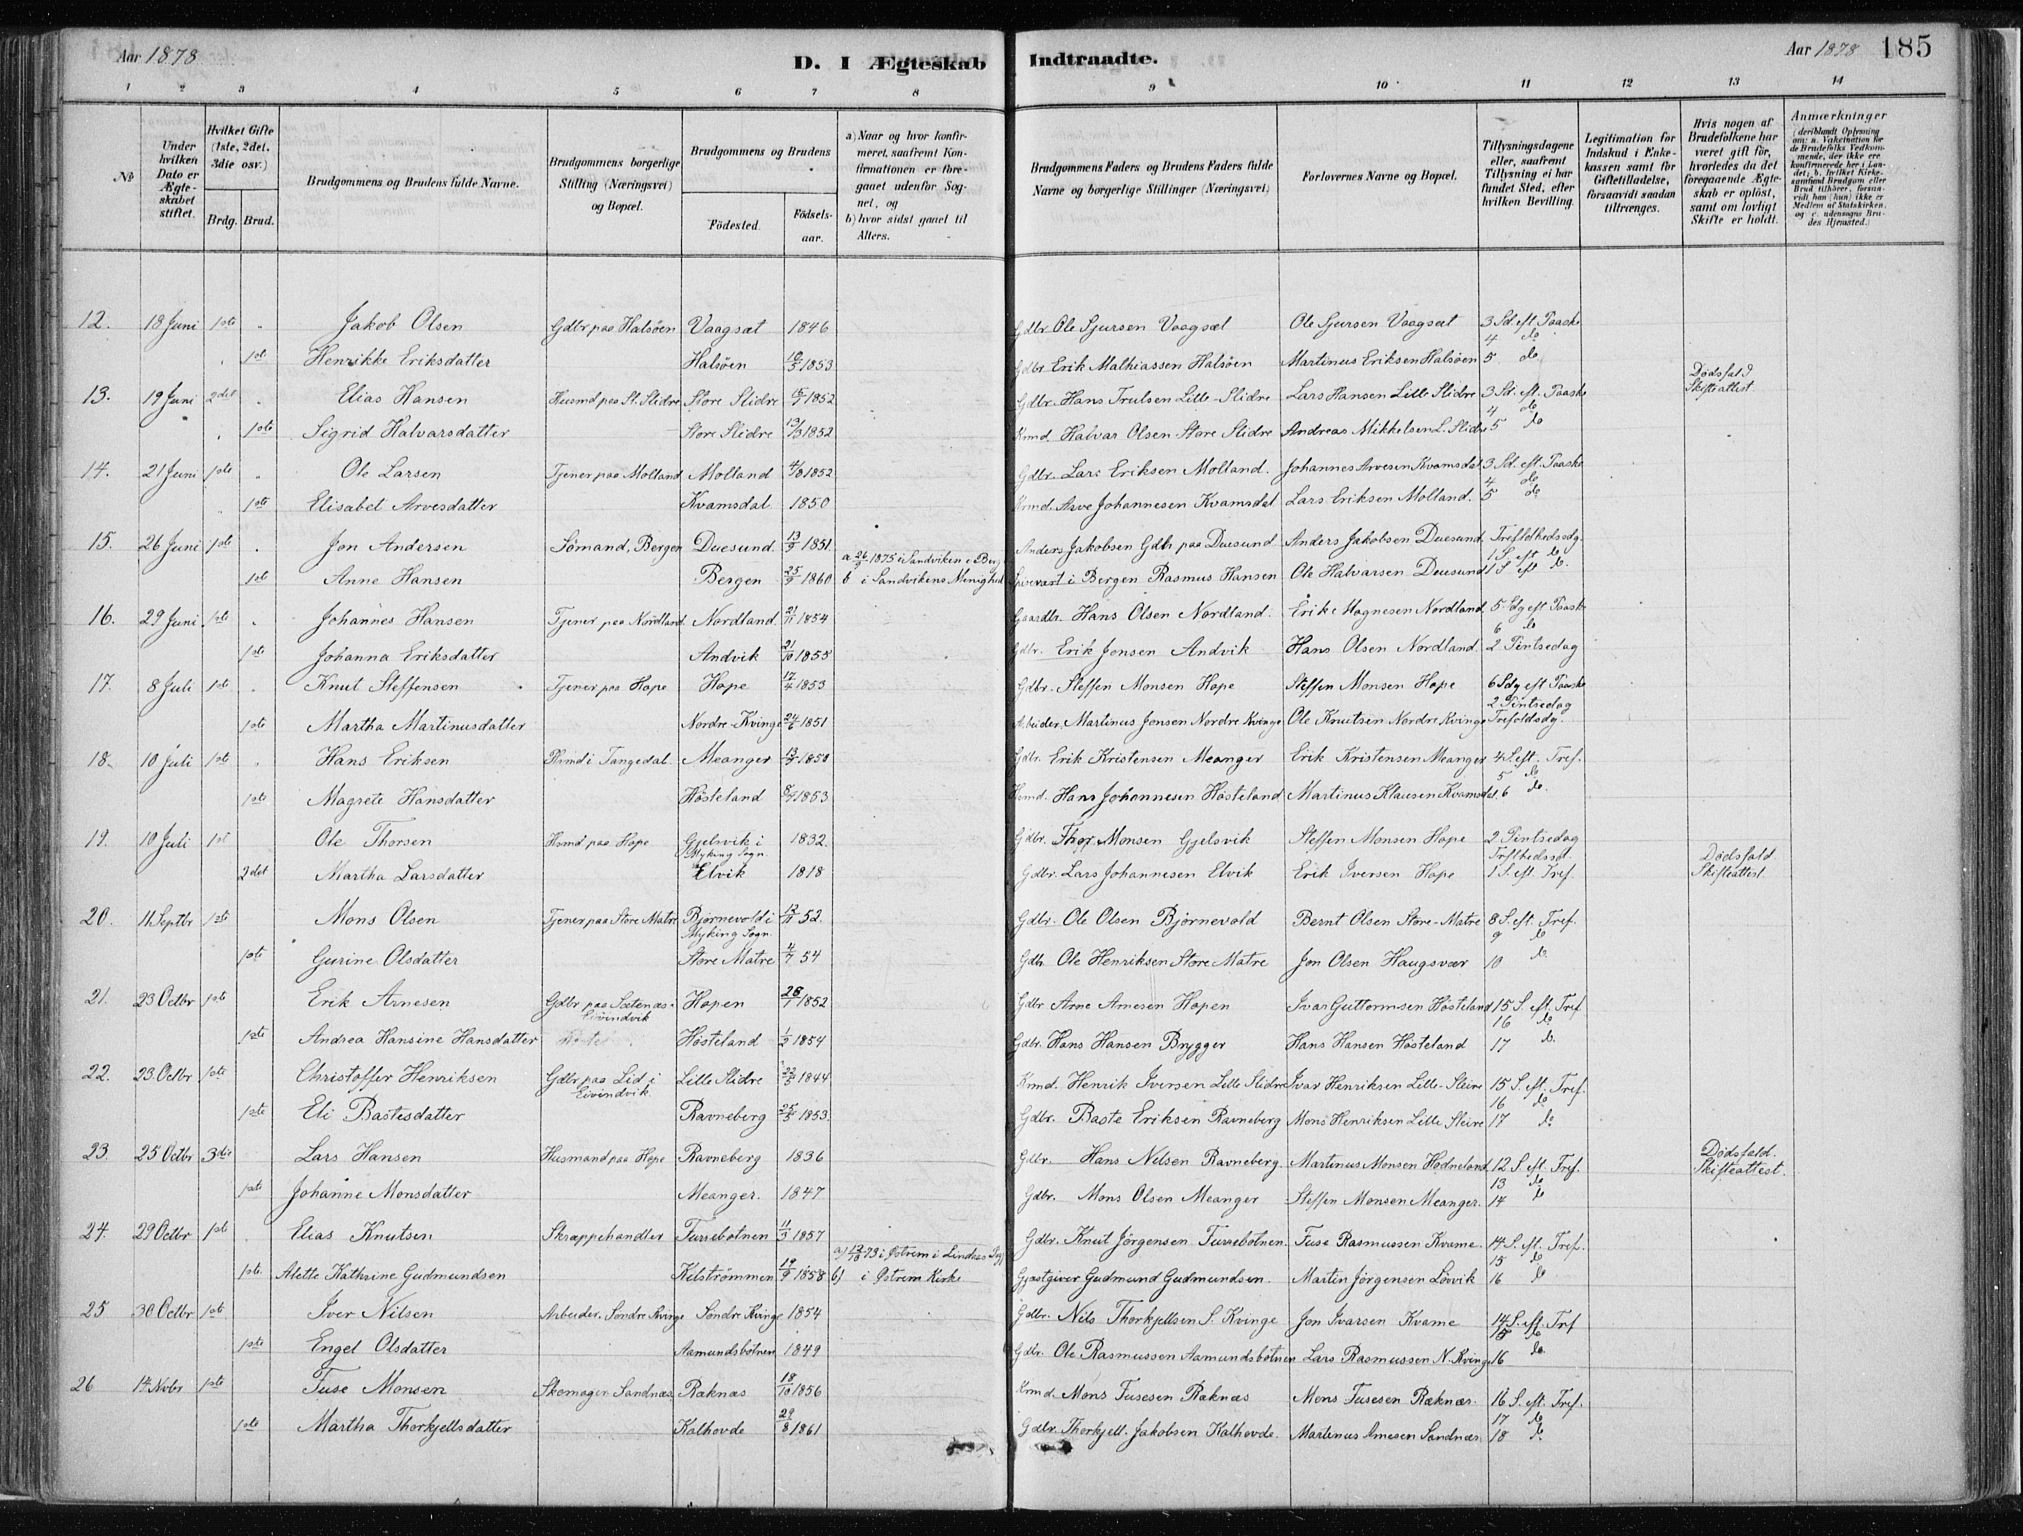 Aar 1878
D. I Ægteskab Indtraadte.
Aar 1878 185
1 2 3 4 5 6 7 8 9 10 11 12 13 14
No
Under hvilken Dato er Ægteskabet stiftet.
Hvilket Gifte (1ste, 2det, 3die osv.)
Brdg. Brud.
Brudgommens og Brudens fulde Navne.
Brudgommens borgerlige Stilling (Næringsvei) og Bopæl.
Brudgommens og Brudens
Fødested. Fødselsaar.
a) Naar og hvor konfirmeret, saafremt Konfirmationen er foregaaet udenfor Sognet, og b) hvor sidst gaaet til Alters.
Brudgommens Faders og Brudens Faders fulde Navne og borgerlige Stillinger (Næringsvei)
Forlovernes Navne og Bopæl.
Tillysningsdagene eller, saafremt Tillysning ei har fundet Sted, efter hvilken Bevilling.
Legitimation for Indskud i Enkekassen samt for Giftetilladelse, forsaavidt saadan tiltrænges.
Hvis nogen af Brudefolkene har været gift før, hvorledes da det foregaaende Ægteskab er opløst, samt om lovligt Skifte er holdt.
Anmærkninger
12. 18 Juni 1ste Jakob Olsen Gdbr paa Halsöen Vaagsæt 1846 Gdbr. Ole Sjursen Vaagsæt Ole Sjursen Vaagsæt 3 Sd. eft Paaske
4 do
1ste Henrikke Eriksdatter Halsöen 1853 Gdbr. Erik Mathiassen Halsöen Martinus Eriksen Halsöen 5 do
13. 19 Juni 2det Elias Hansen Husmd paa St. Slidre Store Slidre 1852 Gdbr. Hans Trulsen Lille-Slidre Lars Hansen Lille Slidre 3 Sd. eft. Paaske Dødsfald Skifteattest
4 do
1ste Sigrid Halvarsdatter Store Slidre 13/3 1852 Krmd. Halvar Olsen Store Slidre Andreas Mikkelsen L. Slidre 5 do
14. 21 Juni 1ste Ole Larsen Tjener paa Molland Molland 4/8 1852 Gdbr. Lars Eriksen Molland. Johannes Arvesen Kvamsdal 3 Sd. eft. Paaske
4 do
1ste Elisabet Arvesdatter Kvamsdal 1850 Krmd. Arve Johannesen Kvamsdal Lars Eriksen Molland. 5 do
15. 26 Juni 1ste Jon Andersen Sömand, Bergen Duesund 13/9 1851 Anders Jakobsen Gdb. paa Duesund Anders Jakobsen Duesund Trefoldhedsdg.
a 1875 i Sandviken i Berg. 1 S. eft do
1ste Anne Hansen Bergen 25/9 1860 b i Sandvikens Menighed i Bergen Rasmus Hansen Ole Halvarsen Duesund 1 S eft do
16. 29 Juni 1ste Johannes Hansen Tjener paa Nordland. Nordland. 21/11 1854 Gaardbr. Hans Olsen Nordland. Erik Magnesen Nordland 5 Sdg eft Paaske
6 do
1ste Johanna Eriksdatter Andvik 21/10 1855 Gdbr. Erik Jonsen Andvik Hans Olsen Nordland 2 Pintsedag
17. 8 Juli 1ste Knut Steffensen Tjener paa Hope Hope 17/4 1853 Gdbr. Steffen Monsen Hope Steffen Monsen Hope 6 Sdg eft Paaske
2 Pintsedag
1ste Martha Martinusdatter Nordre-Kvinge 24/6 1851 Arbeider. Martinus Jonsen Nordre Kvinge Ole Knutsen Nordre Kvinge Trefoldsdg.
18. 10 Juli 1ste Hans Eriksen i Tangedal. Meanger 1850 Gdbr. Erik Kristensen Meanger Erik Kristensen Meanger 4 S. eft. Tref.
5 do
1ste Magrete Hansdatter Hösteland 1853 Hans Johannesen Hösteland Martinus Klausen Kvamsdal. 6 do.
19. 10 Juli 1st Ole Thorsen Hsmd paa Hope Gjelsvik i Myking Sogn 1832. Gdbr. Thor Monsen Gjelsvik Steffen Monsen Hope 2 Pintsedag
2det Martha Larsdatter Elvik 1818 Gdbr. Lars Johannesen Elvik Erik Iversen Hope 1 S. eft. Tref. Dødsfald. Skifteattest.
20. 11 Septbr 1ste Mons Olsen Tjener paa Store Matre Bjørnevold i Myking Sogn. 52. Gdbr. Ole Olsen Bjørnevold Bernt Olsen Store-Matre 8 S. eft. Tref.
9 do
1ste Gurine Olsdatter Store Matre 4/7 54 Gdb. Ole Henriksen Store Matre Jon Olsen Haugsvær 10 do.
21. 23 Octbr 1ste Erik Arnesen Gdbr paa Sætenæs Eivindvik Hopen 28/1 1852 Gdbr Arne Arnesen Hopen Ivar Guttormsen Hösteland 15 S. eft. Tref.
16 do
1ste Andrea Hansine Hansdatter Hösteland 1854 Gdbr. Hans Hansen Brygger Hans Hansen Hösteland 17 do.
22. 23. Octbr 1ste Christoffer Henriksen Gdbr paa Lid i Eivindvik Lille Slidre 22/5 1844 Krmd. Henrik Iversen Lille Slidre Ivar Henriksen Lille-Sleire 15 S. eft. Tref.
16 do
1ste Eli Bastesdatter Ravneberg 25/5 1853. Gdbr. Baste Eriksen Ravneberg Mons Henriksen Lille Sleire 17 do
23. 25 Octbr 3die Lars Hansen Husmand paa Hope Ravneberg 1836 Gdbr. Hans Nilsen Ravneberg. Martinus Monsen Hodneland 12 S. eft Tref. Dødsfald. Skifteattest.
13 do
1ste Johanne Monsdatter Meanger. 1847 Gdbr. Mons Olsen Meanger Steffen Monsen Meanger. 14 do
24. 29 Octbr 1ste Elias Knutsen Skræppehandler Furrebotnen 11/3 1857 Gdbr. Knut Jörgensen Furrebotnen. Fuse Rasmussen Kvame. 14 S. eft. Tref.
a) 73 i Østrem i Lindaas 15 do
1ste. Alette Kathrine Gudmundsen Kilströmmen 19/9 1858 b) i Østrem Kirke Gjæstgiver Gudmund Gudmundsen. Martin Jörgensen Lövvik 16 do
25 30 Octbr 1ste Iver Nilsen Arbeider. Söndre Kvinge Söndre Kvinge 1854 Gdbr. Nils Thorkjellsen S. Kvinge Jon Ivarsen Kvame 14 S. eft. Tref
15 do
1ste Engel Olsdatter Aamundsbotnen 1849 Gdbr. Ole Rasmussen Aamundsbotnen Lars Rasmussen N. Kvinge 16 do
26 14 Nvbr 1ste Fuse Monsen Skomager Sandnæs Ræknæs 18/10 1856 Krmd. Mons Fusesen Ræknæs Mons Fusesen Ræknæs. 16 S. eft. Tref.
17 do
1ste Martha Thorkjellsdatter Kalhovde 29/8 1861 Gdbr. Thorkjell Jakobsen Kalhovde. Martinus Arnesen Sandnæs. 18 do